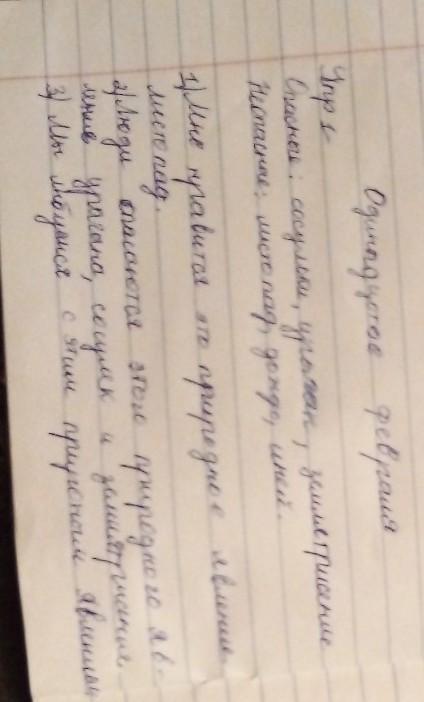 Одинадцатое февраля
Упр 1
Опасные: сосульки, ураган, землетрисение
Неопасные: листопад, дождь, иней.
1) Мне нравится это природное явление
листопад.
2) Люди опасаются этого природного яв-
ление урагана, сосулек и землятрисения.
3) Мы любуемся с этим природным явлением